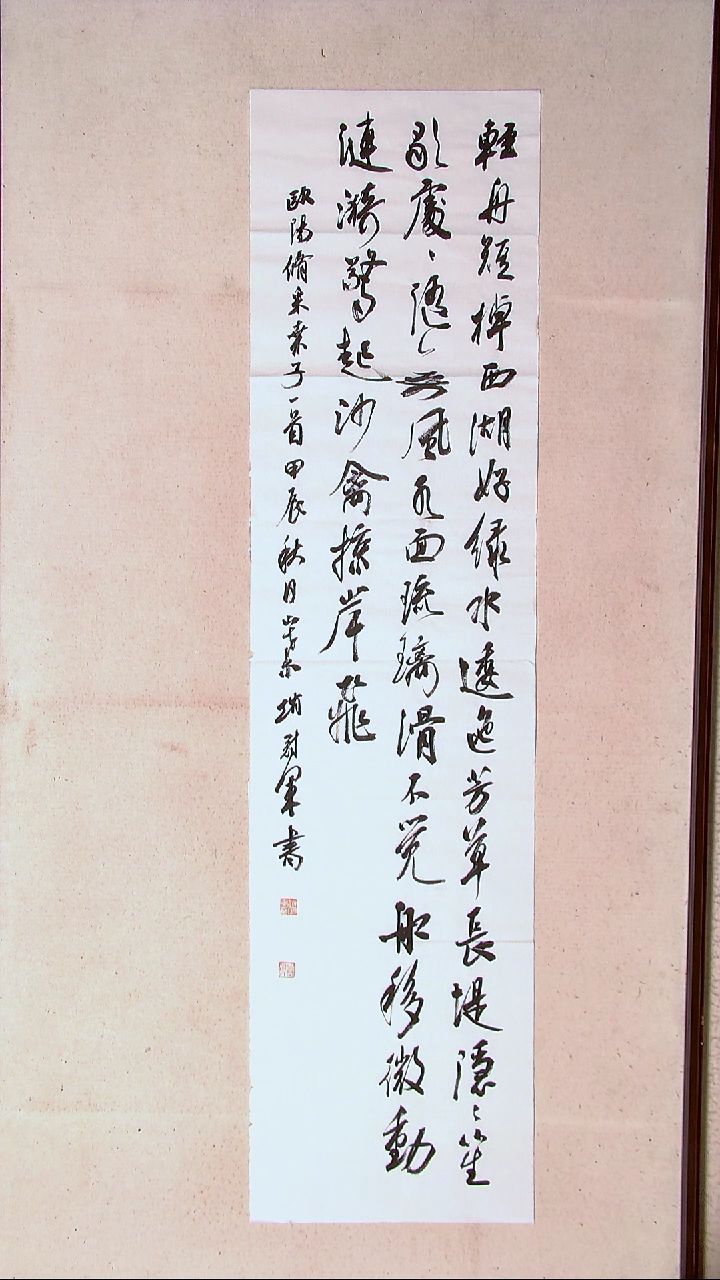 輕舟短棹西湖好綠水逶迤芳草長堤隱〻笙
歌處〻隨〻無風水面琉璃滑不覺船移微動
漣漪驚起沙禽掠岸飛
歐陽脩采桑子一首甲辰秋日
軍書